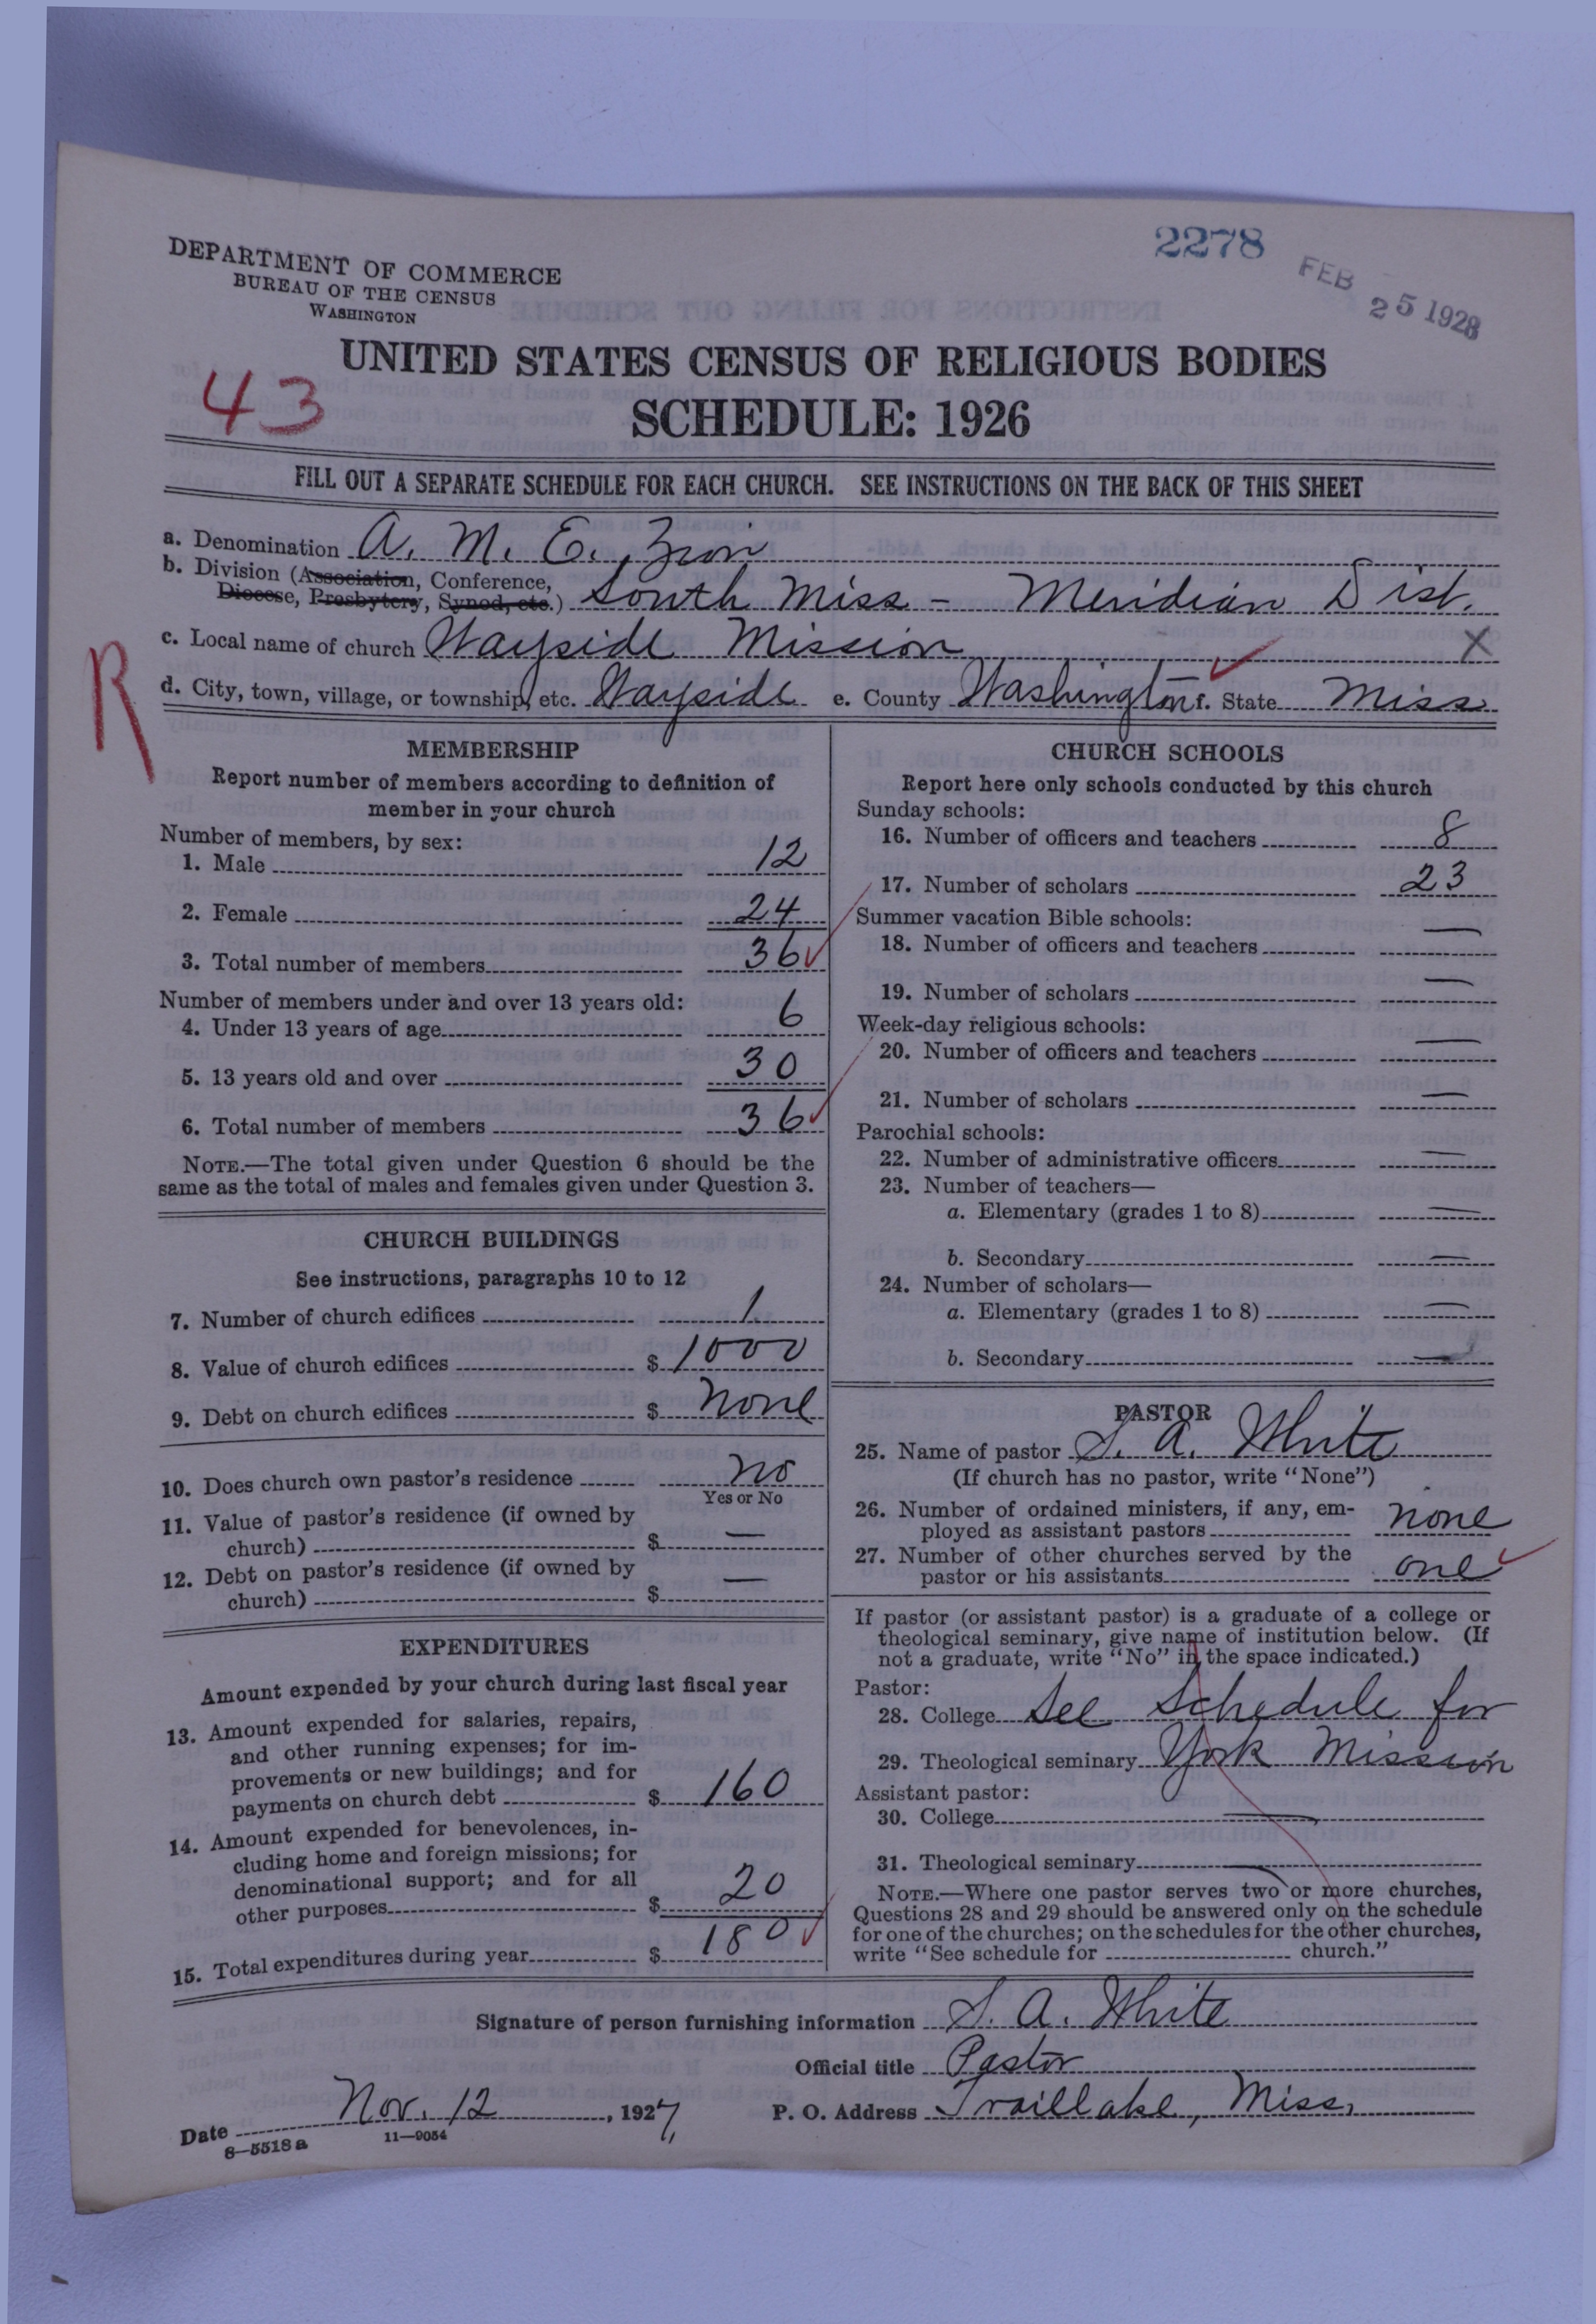 2278
FEB 25 1928
DEPARTMENT OF COMMERCE
BUREAU OF THE CENSUS
WASHINGTON
UNITED STATES CENSUS OF RELIGIOUS BODIES
43
SCHEDULE: 1926
FILL OUT A SEPARATE SCHEDULE FOR EACH CHURCH. SEE INSTRUCTIONS ON THE BACK OF THIS SHEET
a. Denomination A. M. E. Zion
b. Division (Association, Conference,
Diocese, Presbytery, Synod, etc.) South Miss - Meridian Dist.
c. Local name of church Wayside Mission X
R
d. City, town, village, or township, etc. Wayside e. County Washington f. State Miss
MEMBERSHIP
Report number of members according to definition of
member in your church
Number of members, by sex:
1. Male 12
2. Female 24
3. Total number of members 36
Number of members under and over 13 years old:
4. Under 13 years of age 6
5. 13 years old and over 30
6. Total number of members 36
NOTE.—The total given under Question 6 should be the
same as the total of males and females given under Question 3.
CHURCH BUILDINGS
See instructions, paragraphs 10 to 12
7. Number of church edifices 1
8. Value of church edifices $ 1000
9. Debt on church edifices $ None
10. Does church own pastor's residence No
Yes or No
11. Value of pastor's residence (if owned by
church) $ —
12. Debt on pastor's residence (if owned by
church) $ —
EXPENDITURES
Amount expended by your church during last fiscal year
13. Amount expended for salaries, repairs,
and other running expenses; for im-
provements or new buildings; and for
payments on church debt $ 160
14. Amount expended for benevolences, in-
cluding home and foreign missions; for
denominational support; and for all
other purposes $ 20
15. Total expenditures during year $ 180
CHURCH SCHOOLS
Report here only schools conducted by this church
Sunday schools:
16. Number of officers and teachers 8
17. Number of scholars 23
Summer vacation Bible schools:
18. Number of officers and teachers —
19. Number of scholars —
Week-day religious schools:
20. Number of officers and teachers —
21. Number of scholars —
Parochial schools:
22. Number of administrative officers —
23. Number of teachers—
a. Elementary (grades 1 to 8) —
b. Secondary —
24. Number of scholars—
a. Elementary (grades 1 to 8) —
b. Secondary —
PASTOR
25. Name of pastor S. A. White
(If church has no pastor, write "None")
26. Number of ordained ministers, if any, em-
ployed as assistant pastors none
27. Number of other churches served by the
pastor or his assistants one
If pastor (or assistant pastor) is a graduate of a college or
theological seminary, give name of institution below. (If
not a graduate, write "No" in the space indicated.)
Pastor:
28. College See Schedule for
29. Theological seminary York Mission
Assistant pastor:
30. College —
31. Theological seminary —
NOTE.—Where one pastor serves two or more churches,
Questions 28 and 29 should be answered only on the schedule
for one of the churches; on the schedules for the other churches,
write "See schedule for church."
Signature of person furnishing information S. A. White
Official title Pastor
Date Nov. 12, 1927, P. O. Address Traillake, Miss.
8—5518 a 11—9054